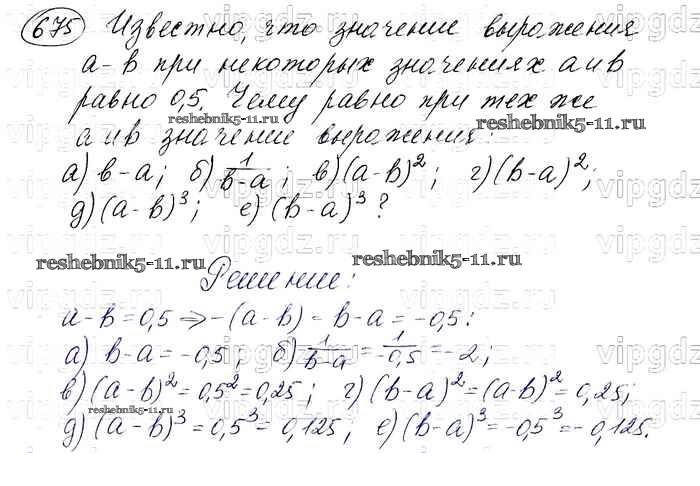 675 Известно, что значение выражения
a-b при некоторых значениях a и b
равно 0,5. Чему равно при тех же
a и b значение выражения:
reshebnik5-11.ru
reshebnik5-11.ru
а) b-a; б) 1/(b-a); в) (a-b)²; г) (b-a)²;
д) (a-b)³; е) (b-a)³?
reshebnik5-11.ru
reshebnik5-11.ru
Решение:
a-b=0,5 ⇒ -(a-b) = b-a = -0,5:
а) b-a = -0,5; б) 1/(b-a) = 1/-0,5 = -2;
в) (a-b)² = 0,5² = 0,25; г) (b-a)² = (a-b)² = 0,25;
reshebnik5-11.ru
д) (a-b)³ = 0,5³ = 0,125; е) (b-a)³ = -0,5³ = -0,125.
vipgdz.ru